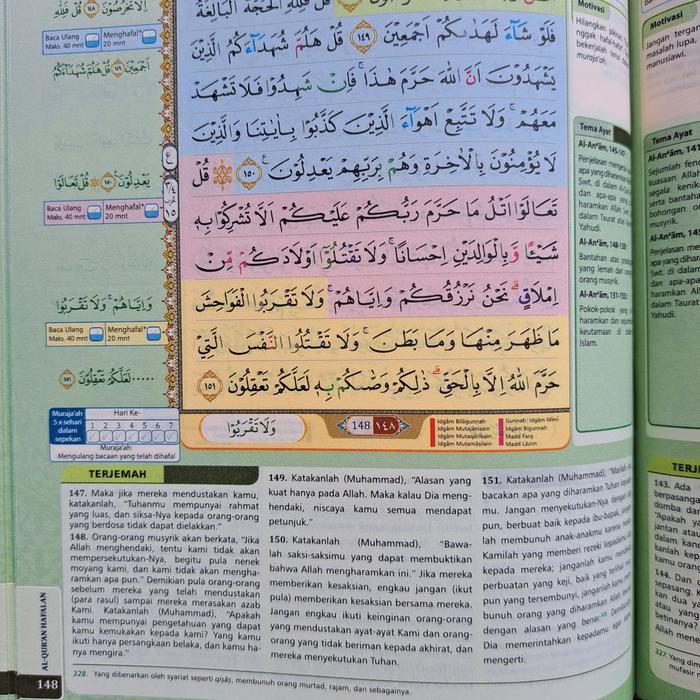 الَّا تَخْرُصُوْنَ ١٤٨ قُلْ فَلِلّٰهِ
Baca Ulang
Maks. 40 mnt
Menghafal*
20 mnt
اَجْمَعِيْنَ ١٤٩ قُلْ هَلُمَّ شُهَدَاۤءَكُمُ
يَعْدِلُوْنَ ١٥٠ ۞ قُلْ تَعَالَوْا
Baca Ulang
Maks. 40 mnt
Menghafal*
20 mnt
وَاِيَّاهُمْ ۚ وَلَا تَقْرَبُوا
Baca Ulang
Maks. 40 mnt
Menghafal*
20 mnt
.....لَعَلَّكُمْ تَعْقِلُوْنَ ١٥١
Muraja'ah
5 x sehari
dalam
sepekan
Hari Ke-
1 2 3 4 5 6 7
Muraja'ah:
Mengulang bacaan yang telah dihafal
قُلْ فَلِلّٰهِ الْحُجَّةُ الْبَالِغَةُ
فَلَوْ شَاۤءَ لَهَدٰىكُمْ اَجْمَعِيْنَ ١٤٩ قُلْ هَلُمَّ شُهَدَاۤءَكُمُ الَّذِيْنَ
يَشْهَدُوْنَ اَنَّ اللّٰهَ حَرَّمَ هٰذَا ۚ فَاِنْ شَهِدُوْا فَلَا تَشْهَدْ
مَعَهُمْ ۚ وَلَا تَتَّبِعْ اَهْوَاۤءَ الَّذِيْنَ كَذَّبُوْا بِاٰيٰتِنَا وَالَّذِيْنَ
لَا يُؤْمِنُوْنَ بِالْاٰخِرَةِ وَهُمْ بِرَبِّهِمْ يَعْدِلُوْنَ ١٥٠ ۞ قُلْ
تَعَالَوْا اَتْلُ مَا حَرَّمَ رَبُّكُمْ عَلَيْكُمْ اَلَّا تُشْرِكُوْا بِهٖ
شَيْـًٔا وَّبِالْوَالِدَيْنِ اِحْسَانًا ۚ وَلَا تَقْتُلُوْٓا اَوْلَادَكُمْ مِّنْ
اِمْلَاقٍ ۗ نَحْنُ نَرْزُقُكُمْ وَاِيَّاهُمْ ۚ وَلَا تَقْرَبُوا الْفَوَاحِشَ
مَا ظَهَرَ مِنْهَا وَمَا بَطَنَ ۚ وَلَا تَقْتُلُوا النَّفْسَ الَّتِيْ
حَرَّمَ اللّٰهُ اِلَّا بِالْحَقِّ ۗ ذٰلِكُمْ وَصّٰىكُمْ بِهٖ لَعَلَّكُمْ تَعْقِلُوْنَ ١٥١
وَلَا تَقْرَبُوْا
148 ١٤٨
Idgām Bilāgunnah
Idgām Mutajānisain
Idgām Mutaqāribain
Idgām Mutamāsilain
Gunnah
Idgām Mimi
Idgām Bigunnah
Madd Farq
Madd Lāzim
Motivasi
Hilangkan
Tema Ayat
Al-An'ām, 145-147:
Penjelasan mengenai
apa yang diharamkan
Swt. di dalam
dalam Taurat
Yahudi.
Al-An'ām, 148-150:
Bantahan atas
yang lemah dari
orang musyrik.
Al-An'ām, 151-153:
Pokok-pokok yang
haramkan dan
keutamaan di
Islam.
TERJEMAH
147. Maka jika mereka mendustakan kamu,
katakanlah, "Tuhanmu mempunyai rahmat
yang luas, dan siksa-Nya kepada orang-orang
yang berdosa tidak dapat dielakkan."
148. Orang-orang musyrik akan berkata, "Jika
Allah menghendaki, tentu kami tidak akan
mempersekutukan-Nya, begitu pula nenek
moyang kami, dan kami tidak akan mengha-
ramkan apa pun." Demikian pula orang-orang
sebelum mereka yang telah mendustakan
(para rasul) sampai mereka merasakan azab
Kami. Katakanlah (Muhammad), "Apakah
kamu mempunyai pengetahuan yang dapat
kamu kemukakan kepada kami? Yang kamu
ikuti hanya persangkaan belaka, dan kamu ha-
nya mengira."
149. Katakanlah (Muhammad), "Alasan yang
kuat hanya pada Allah. Maka kalau Dia meng-
hendaki, niscaya kamu semua mendapat
petunjuk."
150. Katakanlah (Muhammad), "Bawa-
lah saksi-saksimu yang dapat membuktikan
bahwa Allah mengharamkan ini." Jika mereka
memberikan kesaksian, engkau jangan (ikut
pula) memberikan kesaksian bersama mereka.
Jangan engkau ikuti keinginan orang-orang
yang mendustakan ayat-ayat Kami dan orang-
orang yang tidak beriman kepada akhirat, dan
mereka menyekutukan Tuhan.
151. Katakanlah (Muhammad), "Marilah
bacakan apa yang diharamkan Tuhan
mu. Jangan menyekutukan-Nya dengan
pun, berbuat baik kepada ibu-bapak,
lah membunuh anak-anakmu karena
Kamilah yang memberi rezeki kepadamu
kepada mereka; janganlah kamu
perbuatan yang keji, baik yang terlihat
pun yang tersembunyi, janganlah kamu
bunuh orang yang diharamkan Allah
dengan alasan yang benar.
Dia memerintahkan kepadamu agar
mengerti.
328. Yang dibenarkan oleh syariat seperti qiṣāṣ, membunuh orang murtad, rajam, dan sebagainya.
AL-QUR'AN HAFALAN
148
Motivasi
Jangan
masalah lupa,
manusiawi.
Tema Ayat
Al-An'ām, 141
Sejumlah
kuasaan Allah
segala
serta bantahan
bohongan
musyrik.
Al-An'ām,
Penjelasan
apa yang
Swt. di dalam
dan apa-apa
haramkan Allah
dalam Taurat
Yahudi.
143. Ada
berpasang
domba dan
"Apakah
jantan atau
dalam
kanlah
kamu orang
144. Dan
sepasang.
kan dua
atau yang
betinanya?
Allah
327. Yang